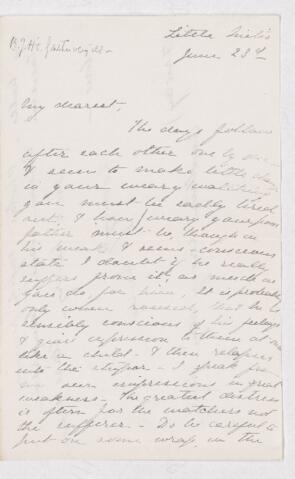 Little
June 23rd
My dearest,
The days follow
after each other one by one
& seem to make little change
in your weary watching
you must be sadly tired
out & how weary your poor
father must be, though in
his weak & semi-conscious
state I doubt if he really
suffers from it as much as
you do for him, it is probably
only when roused, that he is
sensibly conscious of his feelings
& gives expression to them at once
like a child - & then relapses
into the stupor - I speak from
my own impressions in great
weakness - The greatest distress
is often for the watchers not
the sufferer - Do be careful to
put on some wrap, in the